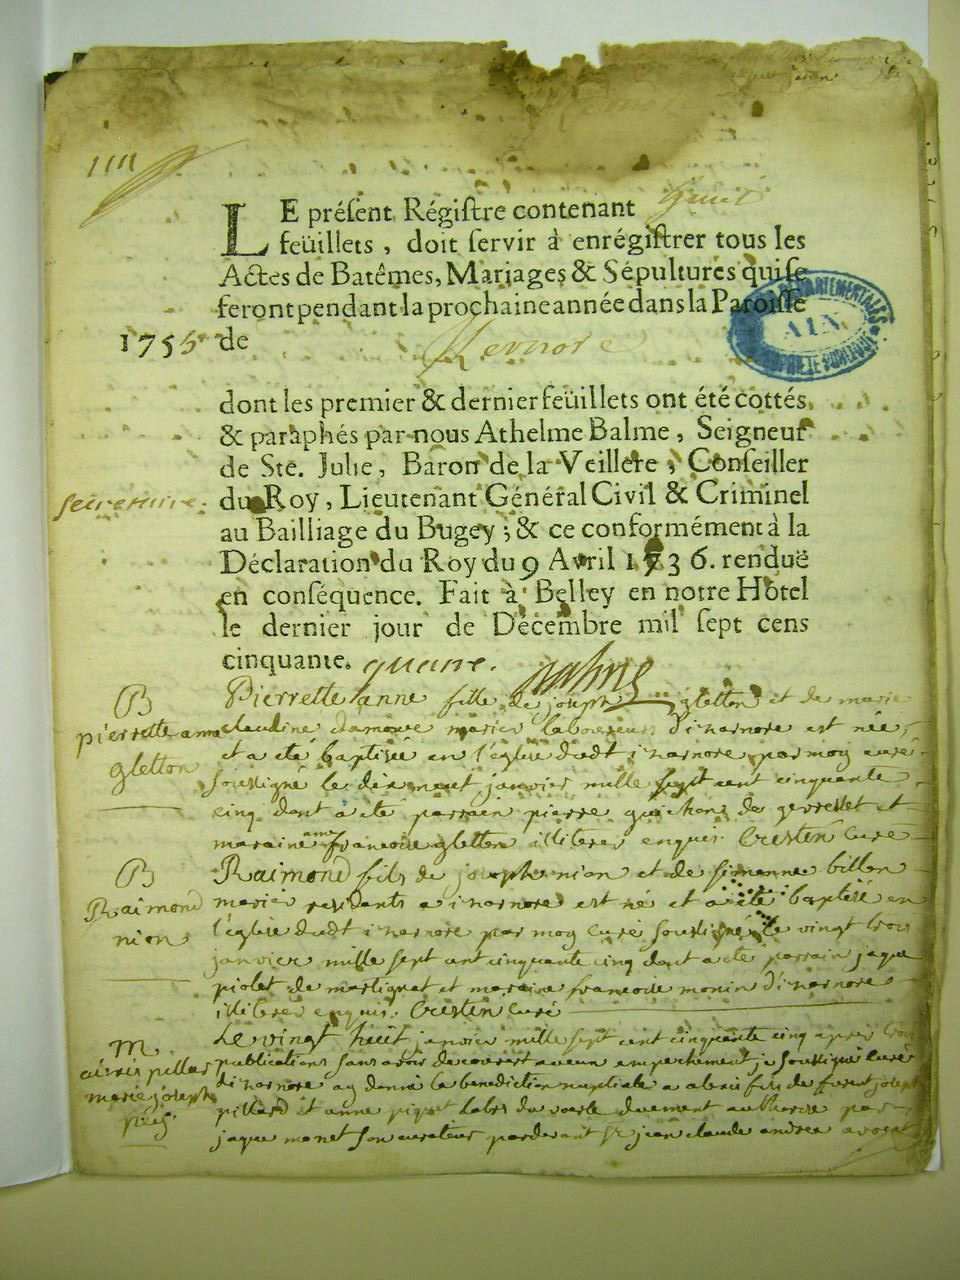 1111
LE préſent Régiſtre contenant huit
feüillets, doit ſervir à enrégiſtrer tous les
Actes de Batêmes, Mariages & Sépultures qui ſe
feront pendant la prochaine année dans la Paroiſſe
1755 de
ARCHIVES DEPARTEMENTALES
AIN
PROPRIÉTÉ PUBLIQUE
dont les premier & dernier feüillets ont été cottés
& paraphés par nous Athelme Balme, Seigneur
de Ste. Julie, Baron de la Veillere, Conſeiller
secretaire. du Roy, Lieutenant Général Civil & Criminel
au Bailliage du Bugey; & ce conformément à la
Déclaration du Roy du 9 Avril 1736. renduë
en conſéquence. Fait à Belley en notre Hôtel
le dernier jour de Décembre mil ſept cens
cinquante. quatre. Balme
B
pierrette anne
gletton
Pierrette anne fille de joseph gletton et de marie
claudine damour mariés laboureurs d'izarnore est née
et a été baptisée en l'église dudt izarnore par moy curé
soussigné le dix neuf janvier mille sept cent cinquante
cinq dont a été parrain pierre guichon de gevresset et
maraine anne francoise gletton illiteres enquis Cresten curé
B
Raimond
nion
Raimond fils de joseph nion et de simonne billon
mariés residants a izarnore est né et a été baptisé en
l'église dudt izarnore par moy curé soussigné le vingt trois
janvier mille sept cent cinquante cinq dont a été parrain jaque
piolet de martignat et maraine francoise monin d'izarnore
illiteres enquis. Cresten curé
M
pillard
marie joseph
Le vingt huit janvier mille sept cent cinquante cinq apres trois
publications sans avoir decouvert aucun empechement je soussigné curé
d'izarnore ay donné la benediction nuptiale a fils de joseph
pillard et anne piquet labrs du duement authorisé par
jaque monet son curateur pardevant Sr jean claude andrea avocat